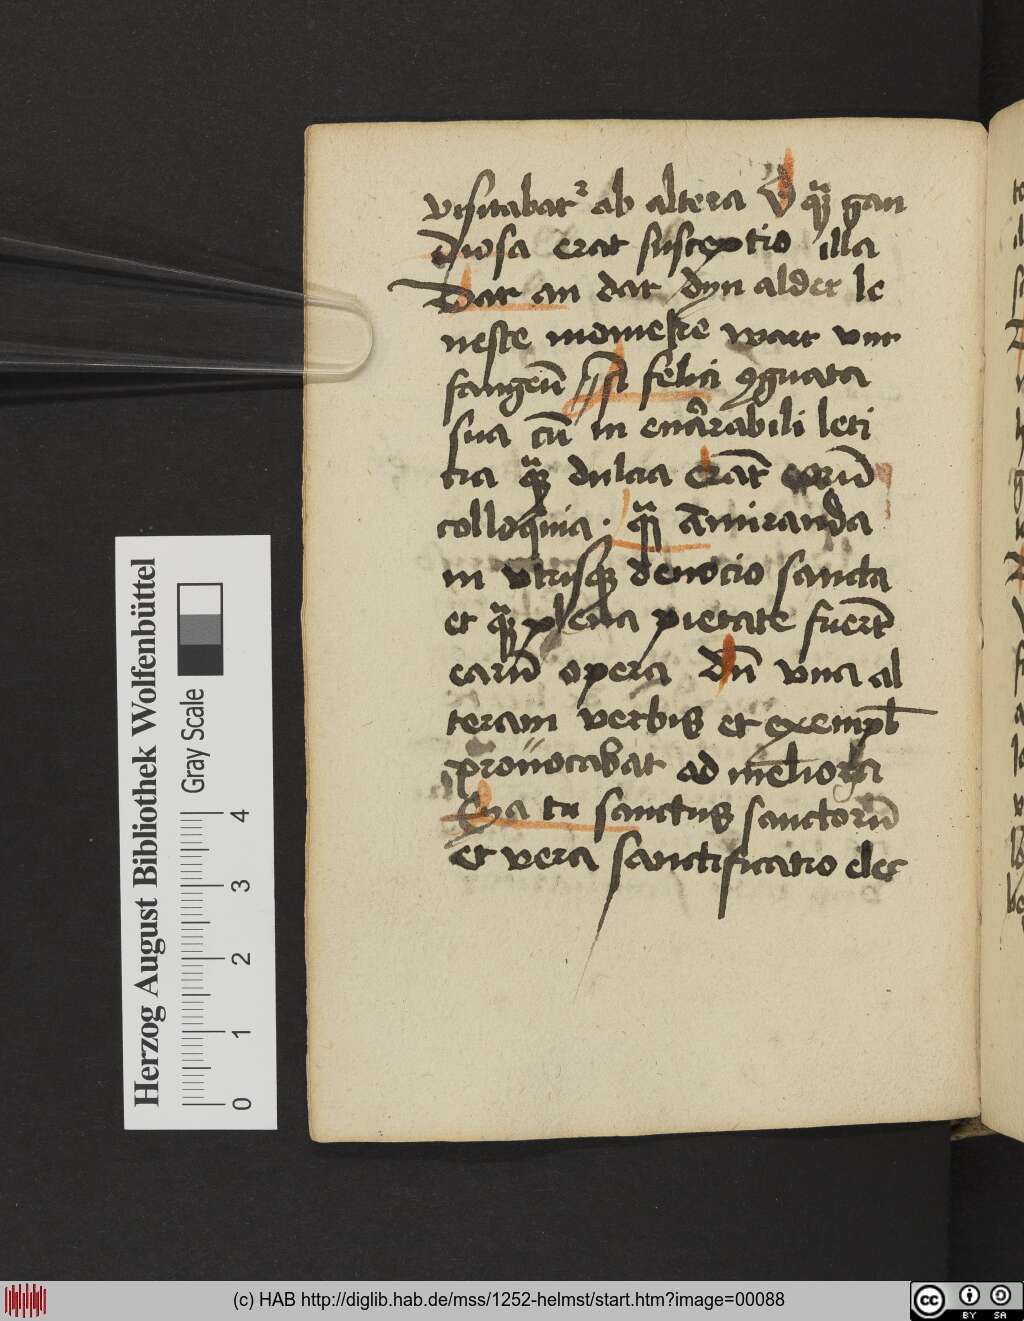 visitabat² ab altera O qꝫ gau
diosa erat susceptio illa
Dar an dat dyn alder le
neste momeke wart vnt
fangeū si felici ꝯgnata
sua cū in enarabili leti
cia qꝫ dulcia erāt eorū
colloquia · qꝫ amiranda
in vtrisqꝫ deuocio sancta
et qꝫ plena pietate fuerūt
earū opera dū vna al
teram verbis et exempl
prouocabat ad meliora
Eya tu sanctus sanctorū
et vera sanctificatio elec
Herzog August Bibliothek Wolfenbüttel
Gray Scale
0 1 2 3 4
(c) HAB http://diglib.hab.de/mss/1252-helmst/start.htm?image=00088
cc BY SA